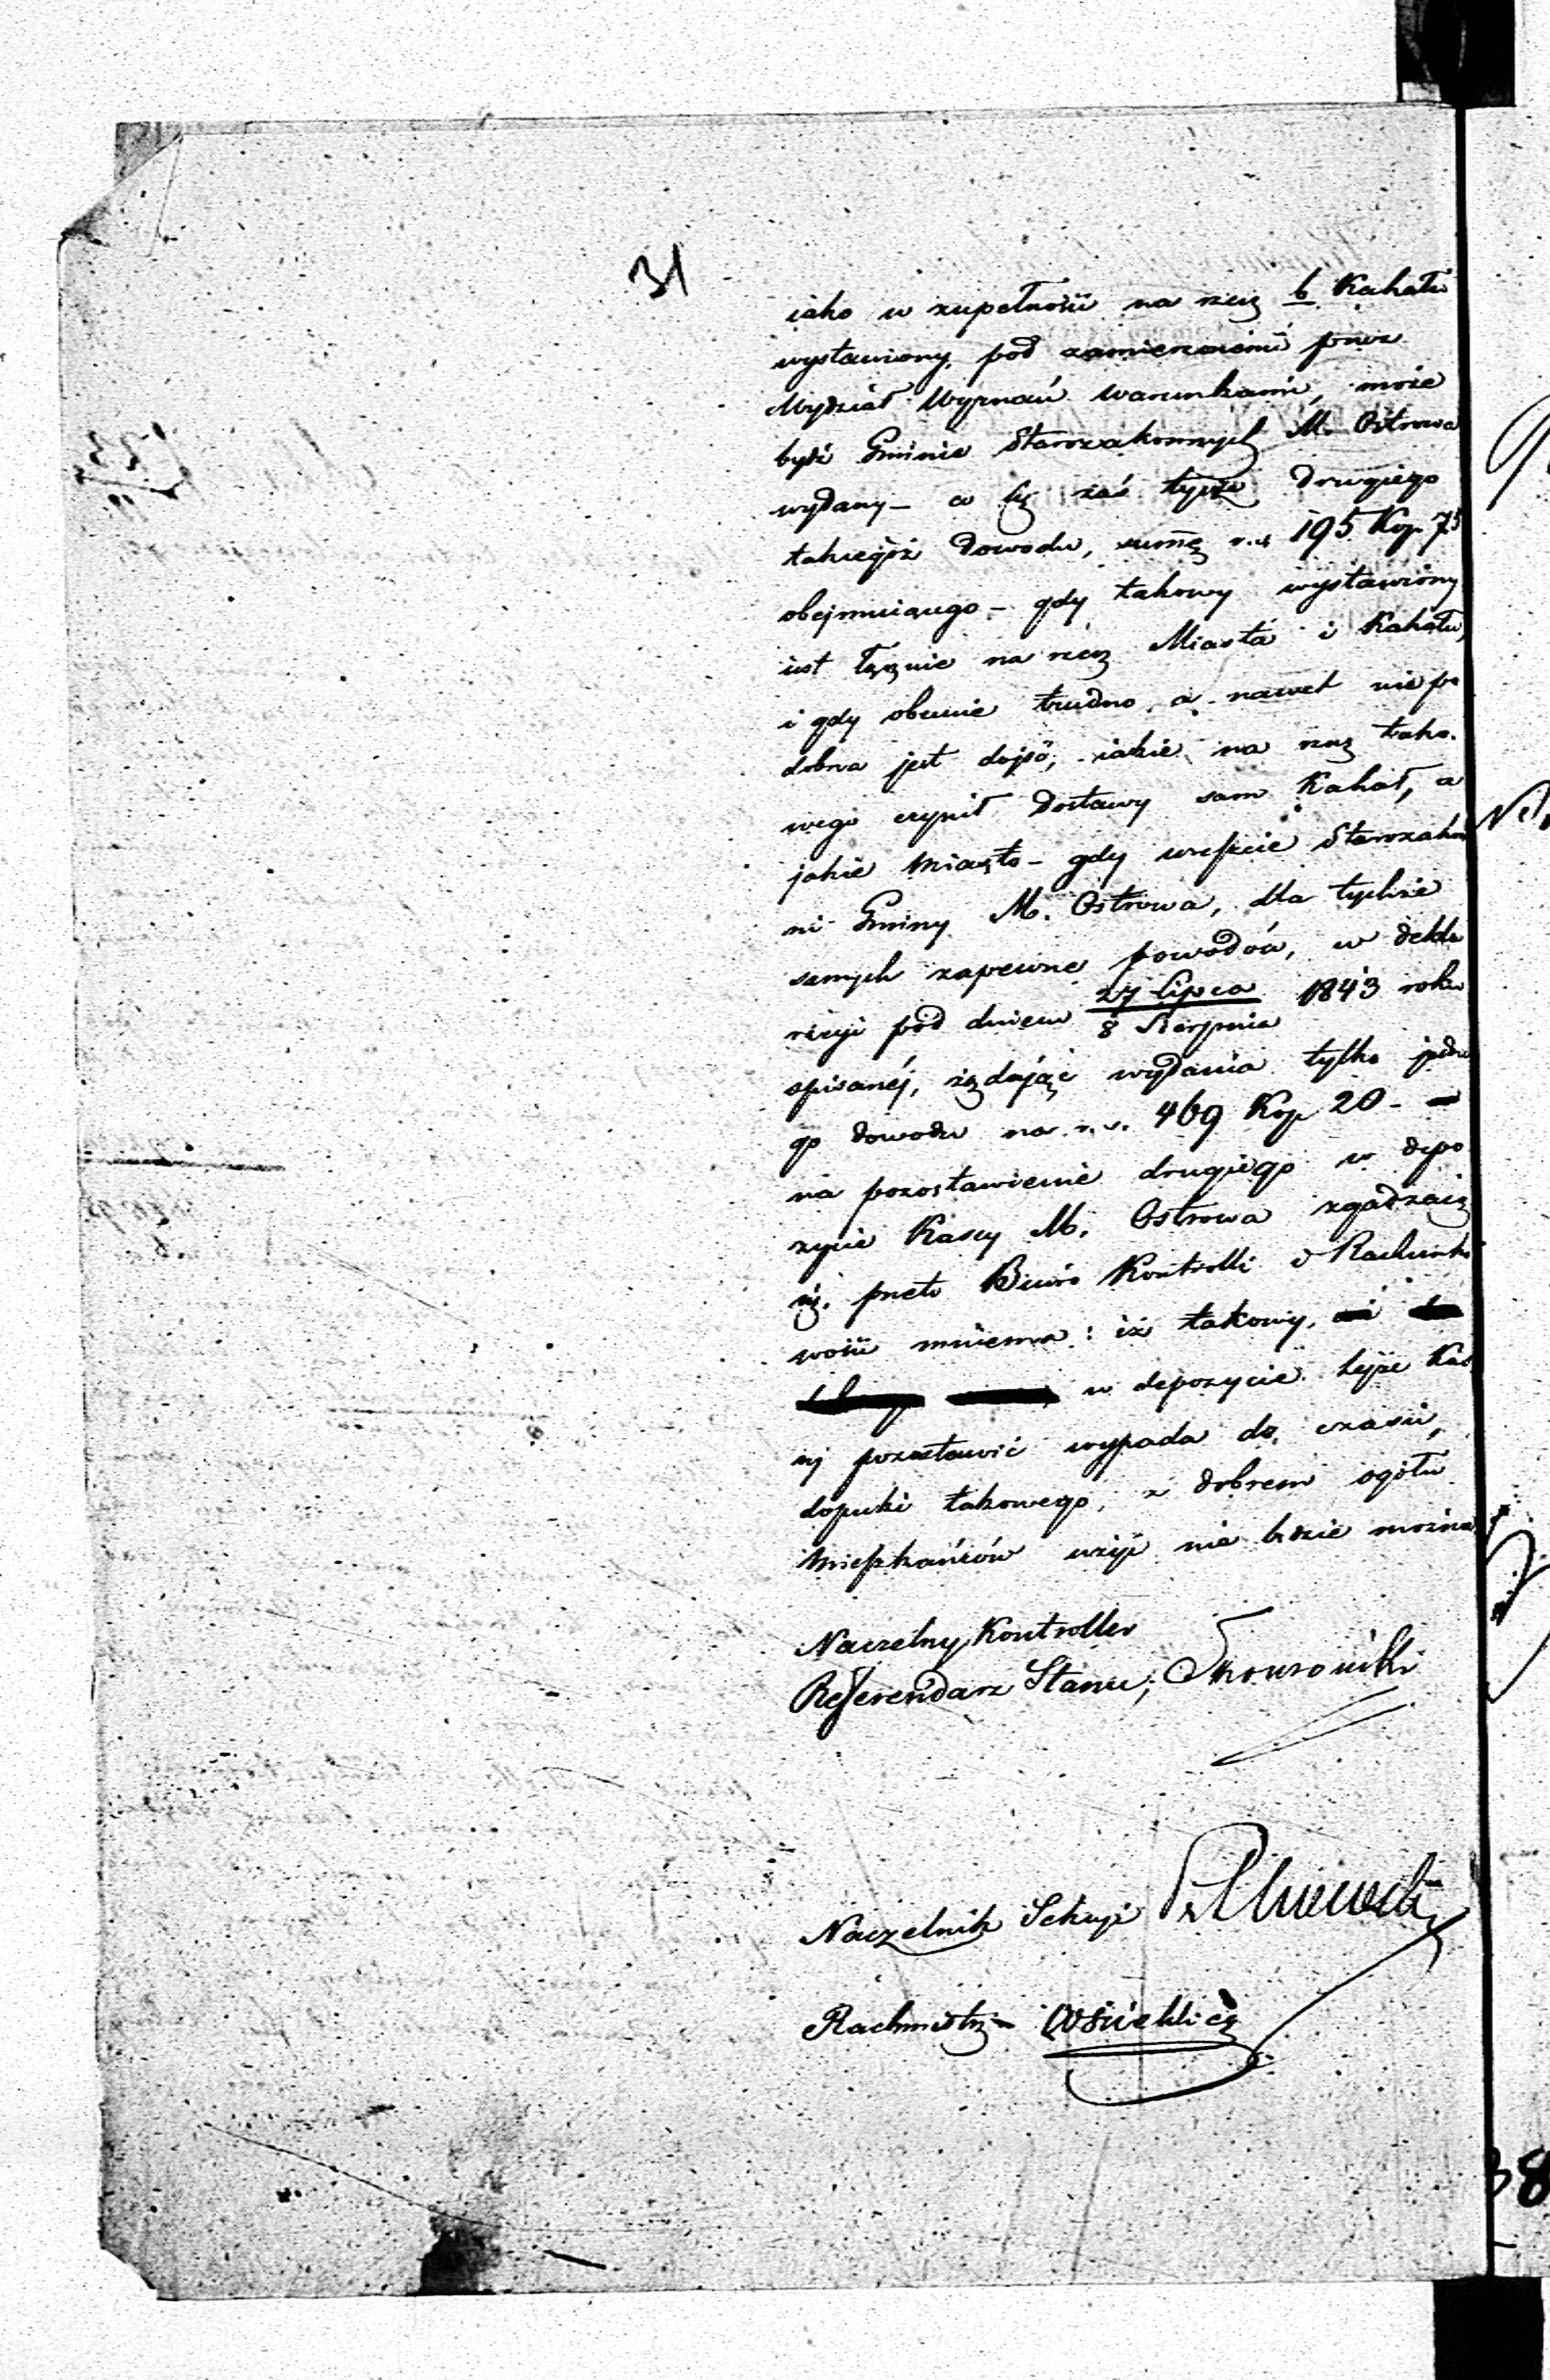 31
iako w zupełności na rzecz b. Kahału
wystawiony, pod zamierzonemi przez
Wydział Wyznań warunkami, może
bydź Gminie Starozakonnych M. Ostrowa
wydany – co się zaś tycze drugiego
takiegóż dowodu, summę r.s. 195 Kop. 75
obejmuiącego – gdy takowy wystawiony
iest łącznie na rzecz Miasta i Kahału,
i gdy obecnie trudno, a nawet niepo
dobna jest dojść, iakie na rzecz tako-
wego czynił dostawy sam Kahał, a
jakie Miasto – gdy wreszcie Starozakon
ni Gminy M. Ostrowa, dla tychże
samych zapewne powodów, w dekla
racyi pod dniem 27 Lipca / 8 Sierpnia 1843 roku
spisanéj, żądając wydania tylko jedne
go dowodu na r.s. 469 Kop 20 –
na pozostawienie drugiego w depo
zycie Kassy M. Ostrowa zgadzaią
się, przeto Biuro Kontrolli i Rachunko
wości mniema: iż takowy,
w depozycie tejże Kas
sy pozostawić wypada do czasu,
dopuki takowego, z dobrem ogółu
Mieszkańców użyć nie będzie można
Naczelny Kontroller
Referendarz Stanu,
Naczelnik Sekcyi
Rachmistrz
38